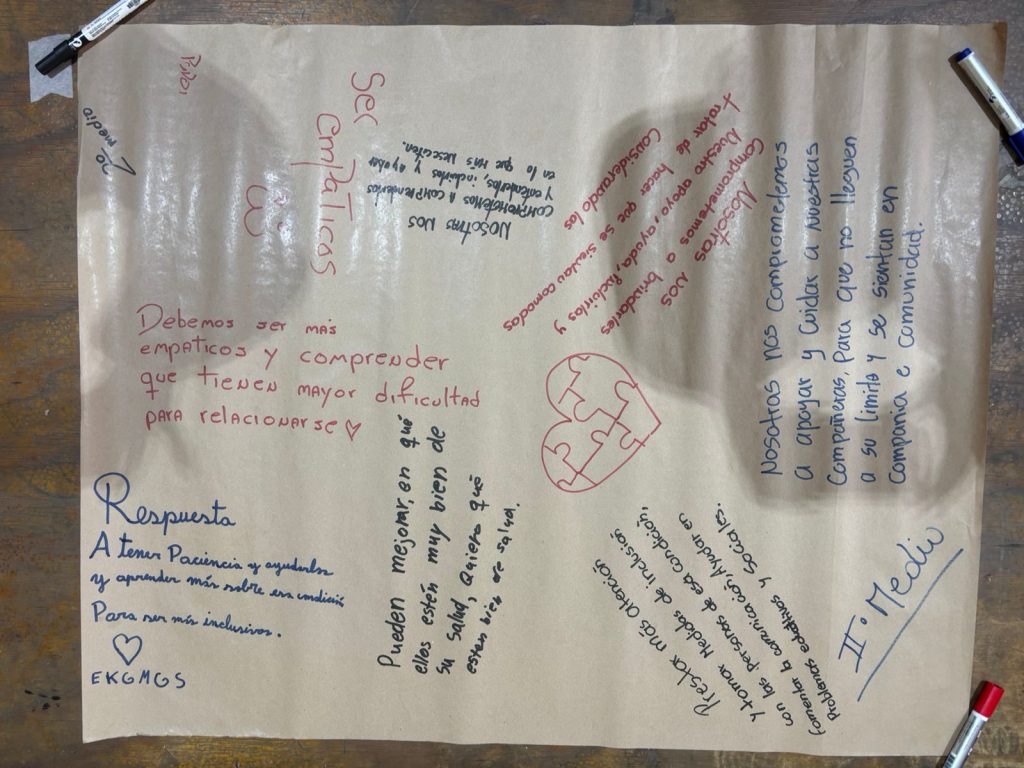 2do medio
Ser
empáticos
NOSOTRAS NOS
COMPROMETEMOS A COMPRENDERLOS
y entenderlos, incluirlos y apoyar
en lo que más necesiten.
Nosotras nos
Comprometemos a brindarles
Nuestro apoyo, ayuda, Incluirlos y
tratar de hacer que se sientan comodos
Considerando los
Nosotras nos comprometemos
a apoyar y Cuidar a nuestras
Compañeras, Para que no lleguen
a su limite y se sientan en
compania e comunidad.
Debemos ser más
empaticos y comprender
que tienen mayor dificultad
para relacionarse
Respuesta
A tener Paciencia y ayudarlos
y aprender más sobre esa condición
Para ser más inclusivos.
EKGMGS
Pueden mejorar, en qué
ellos estén muy bien de
su salud, quiero qué
estén bien de salud.
Prestar más atención
y tomar Medidas de inclusión
con las personas de esa condición,
fomentar la comunicación, Ayudar en
Problemas educativos y Sociales.
II° Medio